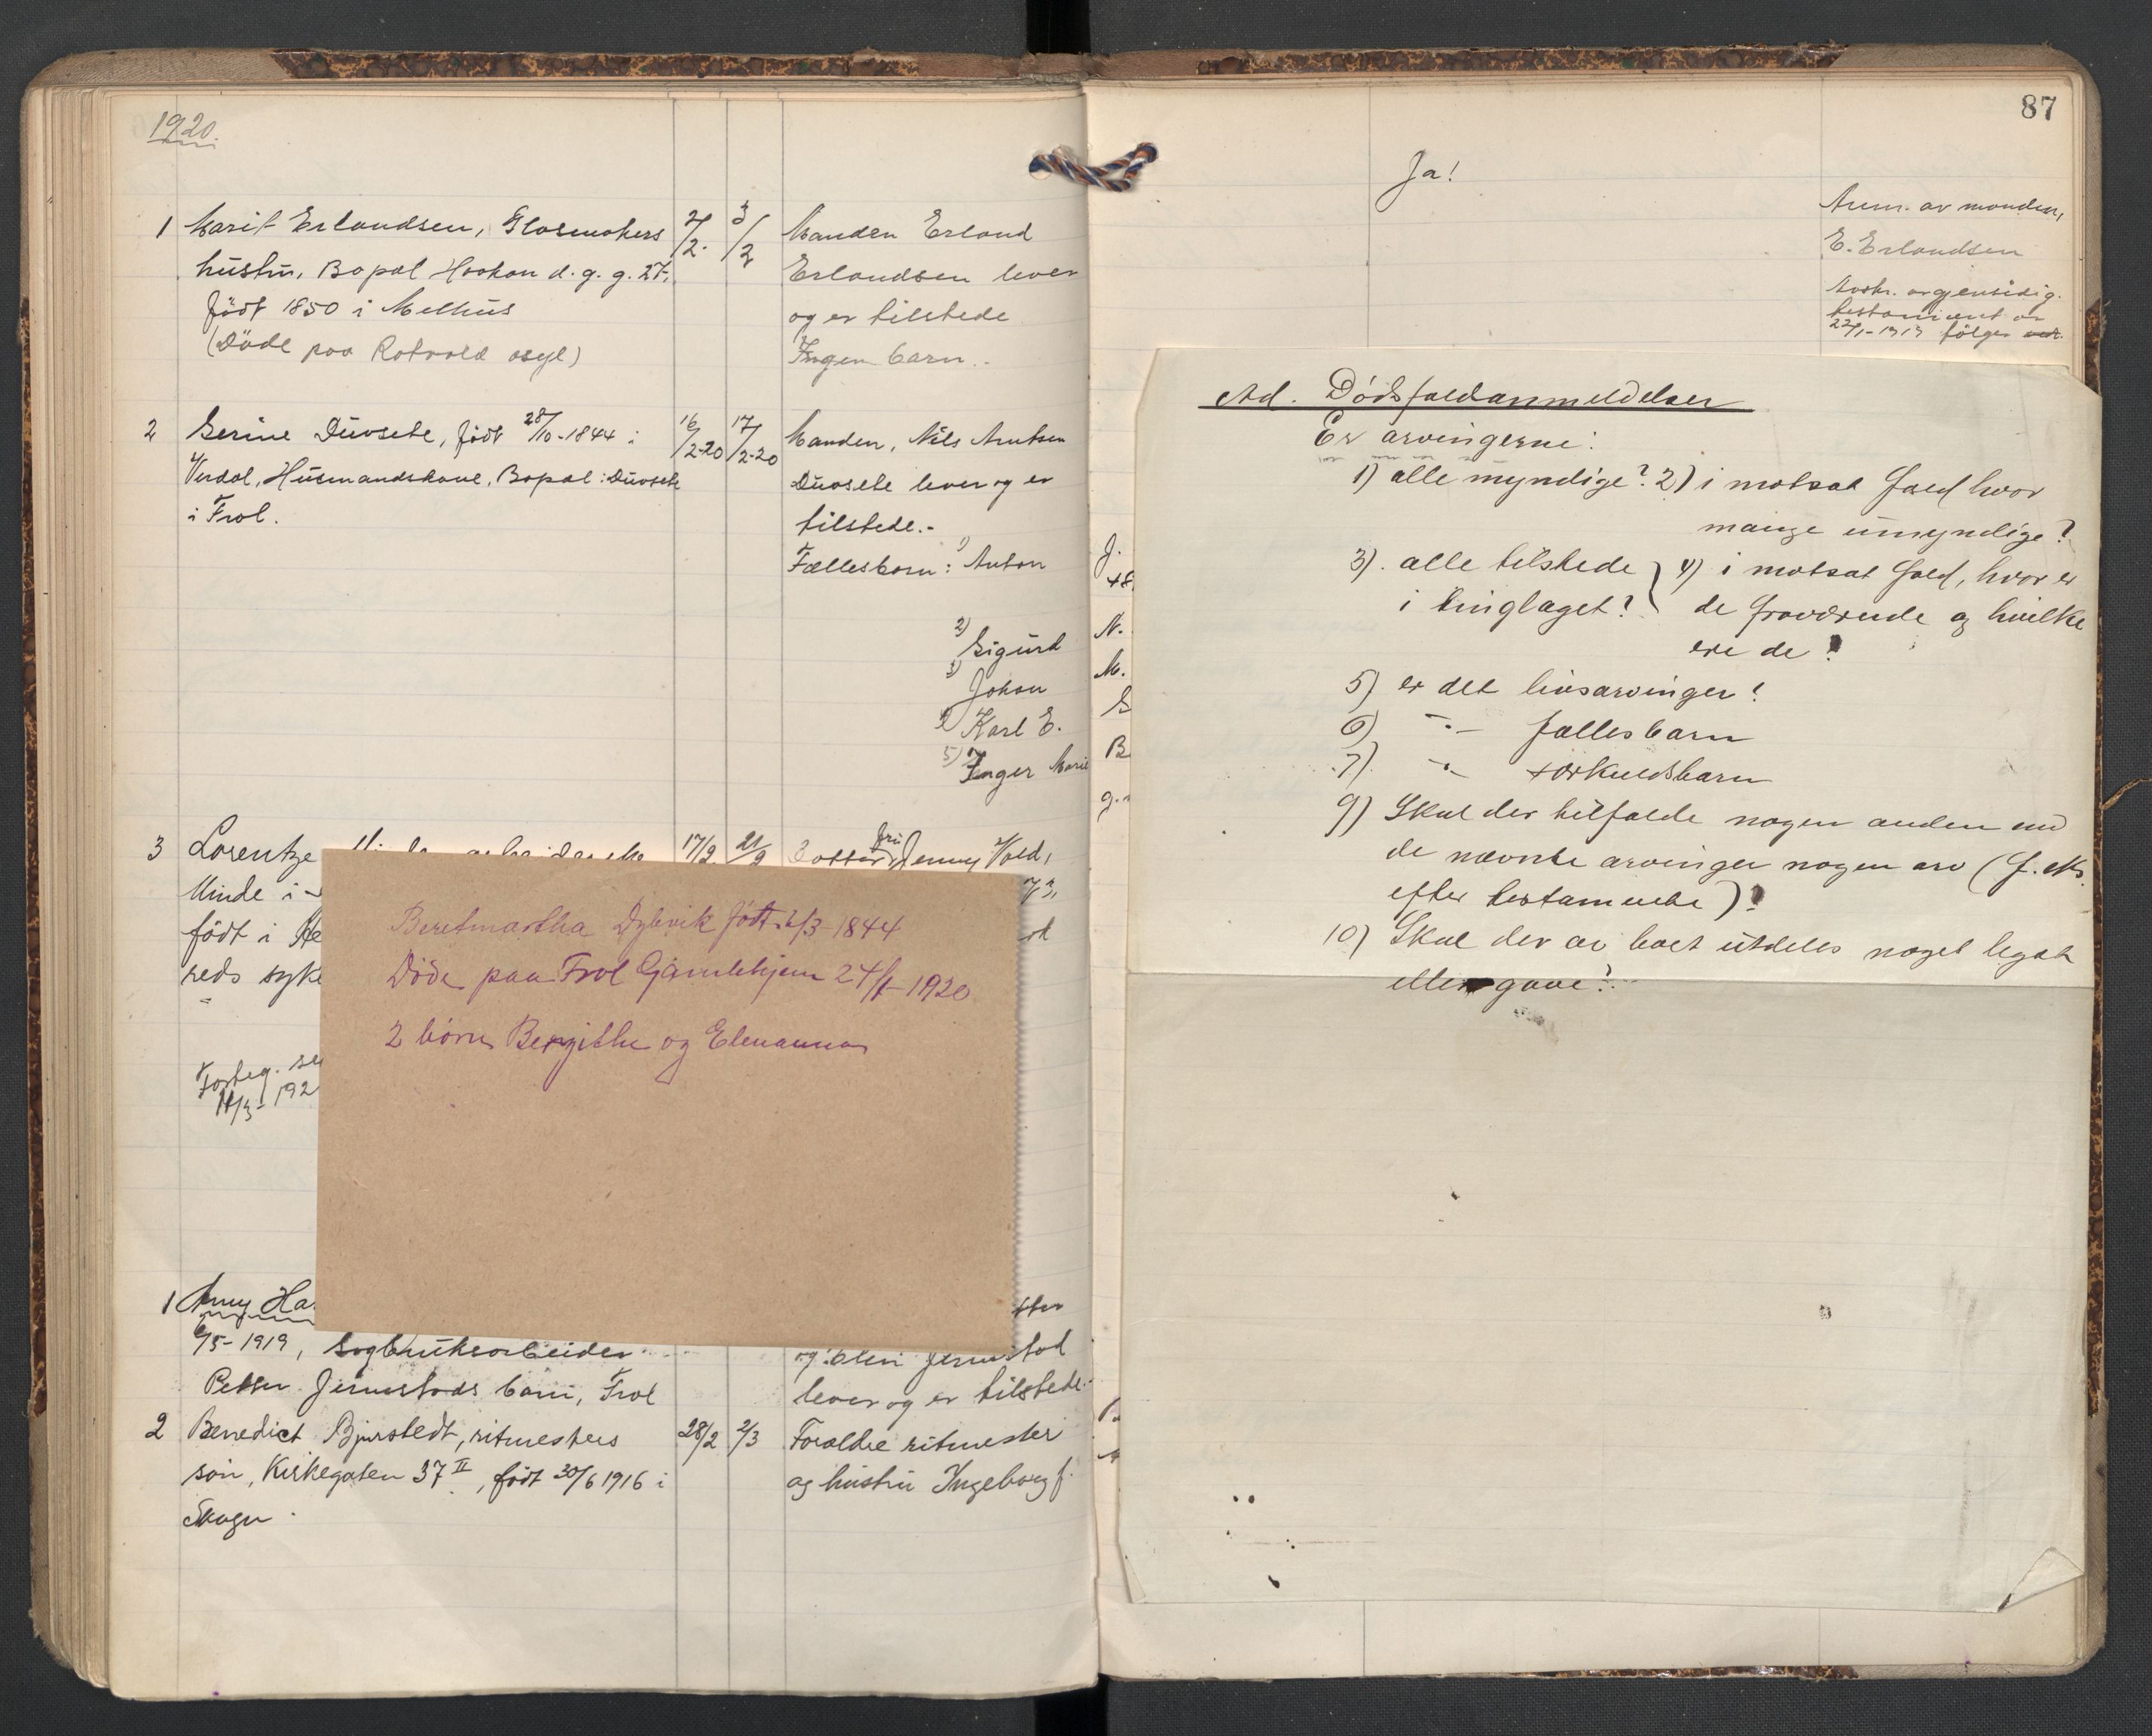 1920.
1 Marit Erlandsen, Glasmakers 2/2. 3/2 Manden Erland
hustru, Bopæl Haakon d. g. g. 27. Erlandsen lever
født 1850 i Melhus og er tilstede
(Døde paa Rotvold asyl) Ingen barn.
2 Serine Duvsete, født 28/10-1844 i 16/2-20 17/2-20 Manden, Nils Arntsen
Verdal, Husmandskone, Bopæl: Duvsete Duvsete lever og er
i Frol. tilstede.-
Fællesbarn: 1) Anton
2) Sigurd
3) Johan
4) Karl E.
5) Inger Marie
3 Lorentze 17/2 21/2 Datter fru Jenny Vold,
Minde i
født i He
reds syke
Forteg. se
11/3-192
Beretmartha Dybvik født 2/3-1844
Døde paa Frol Gamlehjem 24/1-1920
2 børn Bergitte og Elenanna
1 Anny Ha
6/5-1919, Sagbruksarbeider og Jermstad
Petter Jermstads barn, Frol lever og er tilstede.
2 Benedict Bjurstedt, ritmesters 28/2 2/3 Forældre ritmester
søn, Kirkegaten 37 II, født 30/6 1916 i og hustru Ingeborg f.
Skogn.
87
Ja!
Anm. av manden,
E. Erlandsen
Avskr. av gjensidig.
testament av
22/1-1913 følger ved.
J.
N.
M.
S
B
g.
Ad. Dødsfaldanmeldelser
Er arvingerne:
1) alle myndige? 2) i motsat fald hvor
mange umyndige?
3). alle tilstede 4) i motsat fald, hvor er
i tinglaget? de fraværende og hvilke
ere de?
5) er det livsarvinger?
6) -"- fællesbarn
7) -"- særkuldsbarn
9) Skal der tilfalde nogen anden end
de nævnte arvinger nogen arv (f. eks.
efter testamente)?
10) Skal der av boet utdeles noget legat
eller gave?